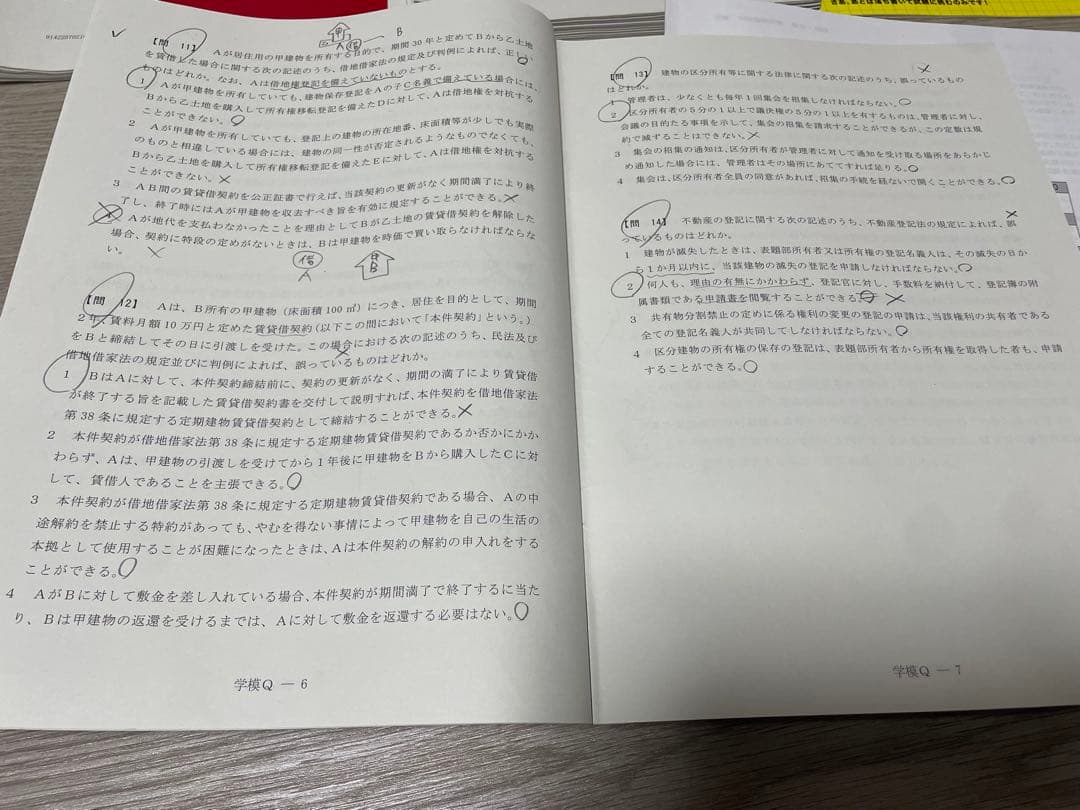 B
A 借
【問 11】 Aが居住用の甲建物を所有する目的で、期間30年と定めてBから乙土地
を賃借した場合に関する次の記述のうち、借地借家法の規定及び判例によれば、正しい
ものはどれか。なお、Aは借地権登記を備えていないものとする。
1 Aが甲建物を所有していても、建物保存登記をAの子C名義で備えている場合には、
Bから乙土地を購入して所有権移転登記を備えたDに対して、Aは借地権を対抗する
ことができない。○
2 Aが甲建物を所有していても、登記上の建物の所在地番、床面積等が少しでも実際
のものと相違している場合には、建物の同一性が否定されるようなものでなくても、
Bから乙土地を購入して所有権移転登記を備えたEに対して、Aは借地権を対抗する
ことができない。×
3 AB間の賃貸借契約を公正証書で行えば、当該契約の更新がなく期間満了により終
了し、終了時にはAが甲建物を収去すべき旨を有効に規定することができる。×
4 Aが地代を支払わなかったことを理由としてBが乙土地の賃貸借契約を解除した
場合、契約に特段の定めがないときは、Bは甲建物を時価で買い取らなければならな
い。×
借
A
甲
B
【問 12】 Aは、B所有の甲建物(床面積100㎡)につき、居住を目的として、期間
2年、賃料月額10万円と定めた賃貸借契約(以下この問において「本件契約」という。)
をBと締結してその日に引渡しを受けた。この場合における次の記述のうち、民法及び
借地借家法の規定並びに判例によれば、誤っているものはどれか。
1 BはAに対して、本件契約締結前に、契約の更新がなく、期間の満了により賃貸借
が終了する旨を記載した賃貸借契約書を交付して説明すれば、本件契約を借地借家法
第38条に規定する定期建物賃貸借契約として締結することができる。×
2 本件契約が借地借家法第38条に規定する定期建物賃貸借契約であるか否かにかか
わらず、Aは、甲建物の引渡しを受けてから1年後に甲建物をBから購入したCに対
して、賃借人であることを主張できる。○
3 本件契約が借地借家法第38条に規定する定期建物賃貸借契約である場合、Aの中
途解約を禁止する特約があっても、やむを得ない事情によって甲建物を自己の生活の
本拠として使用することが困難になったときは、Aは本件契約の解約の申入れをする
ことができる。○
4 AがBに対して敷金を差し入れている場合、本件契約が期間満了で終了するに当た
り、Bは甲建物の返還を受けるまでは、Aに対して敷金を返還する必要はない。○
学模Q － 6
【問 13】 建物の区分所有等に関する法律に関する次の記述のうち、誤っているもの
はどれか。
1 管理者は、少なくとも毎年1回集会を招集しなければならない。○
2 区分所有者の5分の1以上で議決権の5分の1以上を有するものは、管理者に対し、
会議の目的たる事項を示して、集会の招集を請求することができるが、この定数は規
約で減ずることはできない。×
3 集会の招集の通知は、区分所有者が管理者に対して通知を受け取る場所をあらかじ
め通知した場合には、管理者はその場所にあててすれば足りる。○
4 集会は、区分所有者全員の同意があれば、招集の手続を経ないで開くことができる。○
【問 14】 不動産の登記に関する次の記述のうち、不動産登記法の規定によれば、誤
っているものはどれか。
1 建物が滅失したときは、表題部所有者又は所有権の登記名義人は、その滅失の日か
ら1か月以内に、当該建物の滅失の登記を申請しなければならない。○
2 何人も、理由の有無にかかわらず、登記官に対し、手数料を納付して、登記簿の附
属書類である申請書を閲覧することができる。×
3 共有物分割禁止の定めに係る権利の変更の登記の申請は、当該権利の共有者である
全ての登記名義人が共同してしなければならない。○
4 区分建物の所有権の保存の登記は、表題部所有者から所有権を取得した者も、申請
することができる。○
学模Q － 7